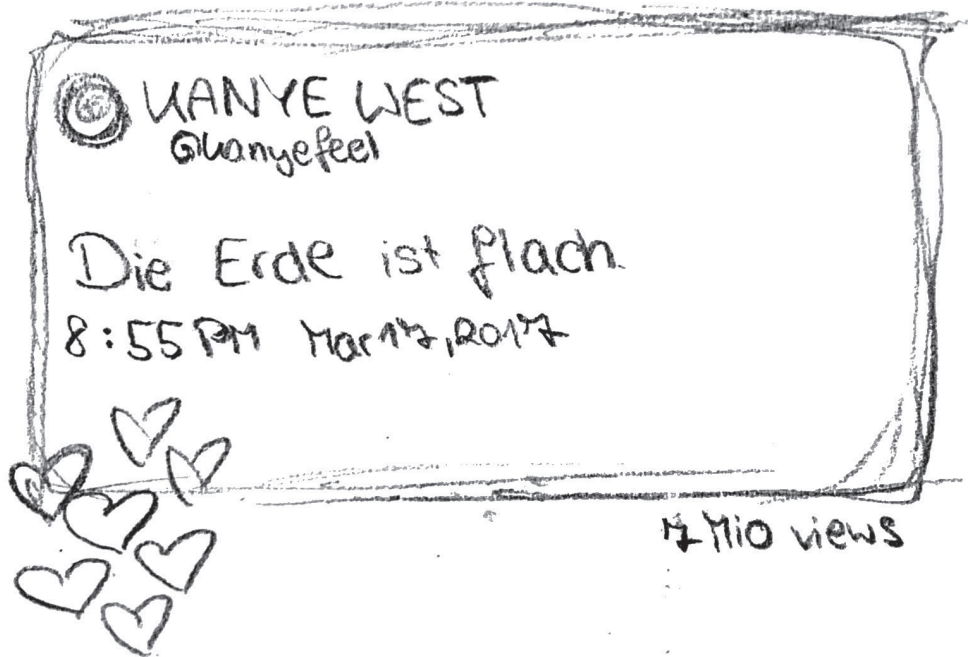 KANYE WEST
@kanyefeel
Die Erde ist flach.
8:55 PM Mar 17, 2017
7 Mio views